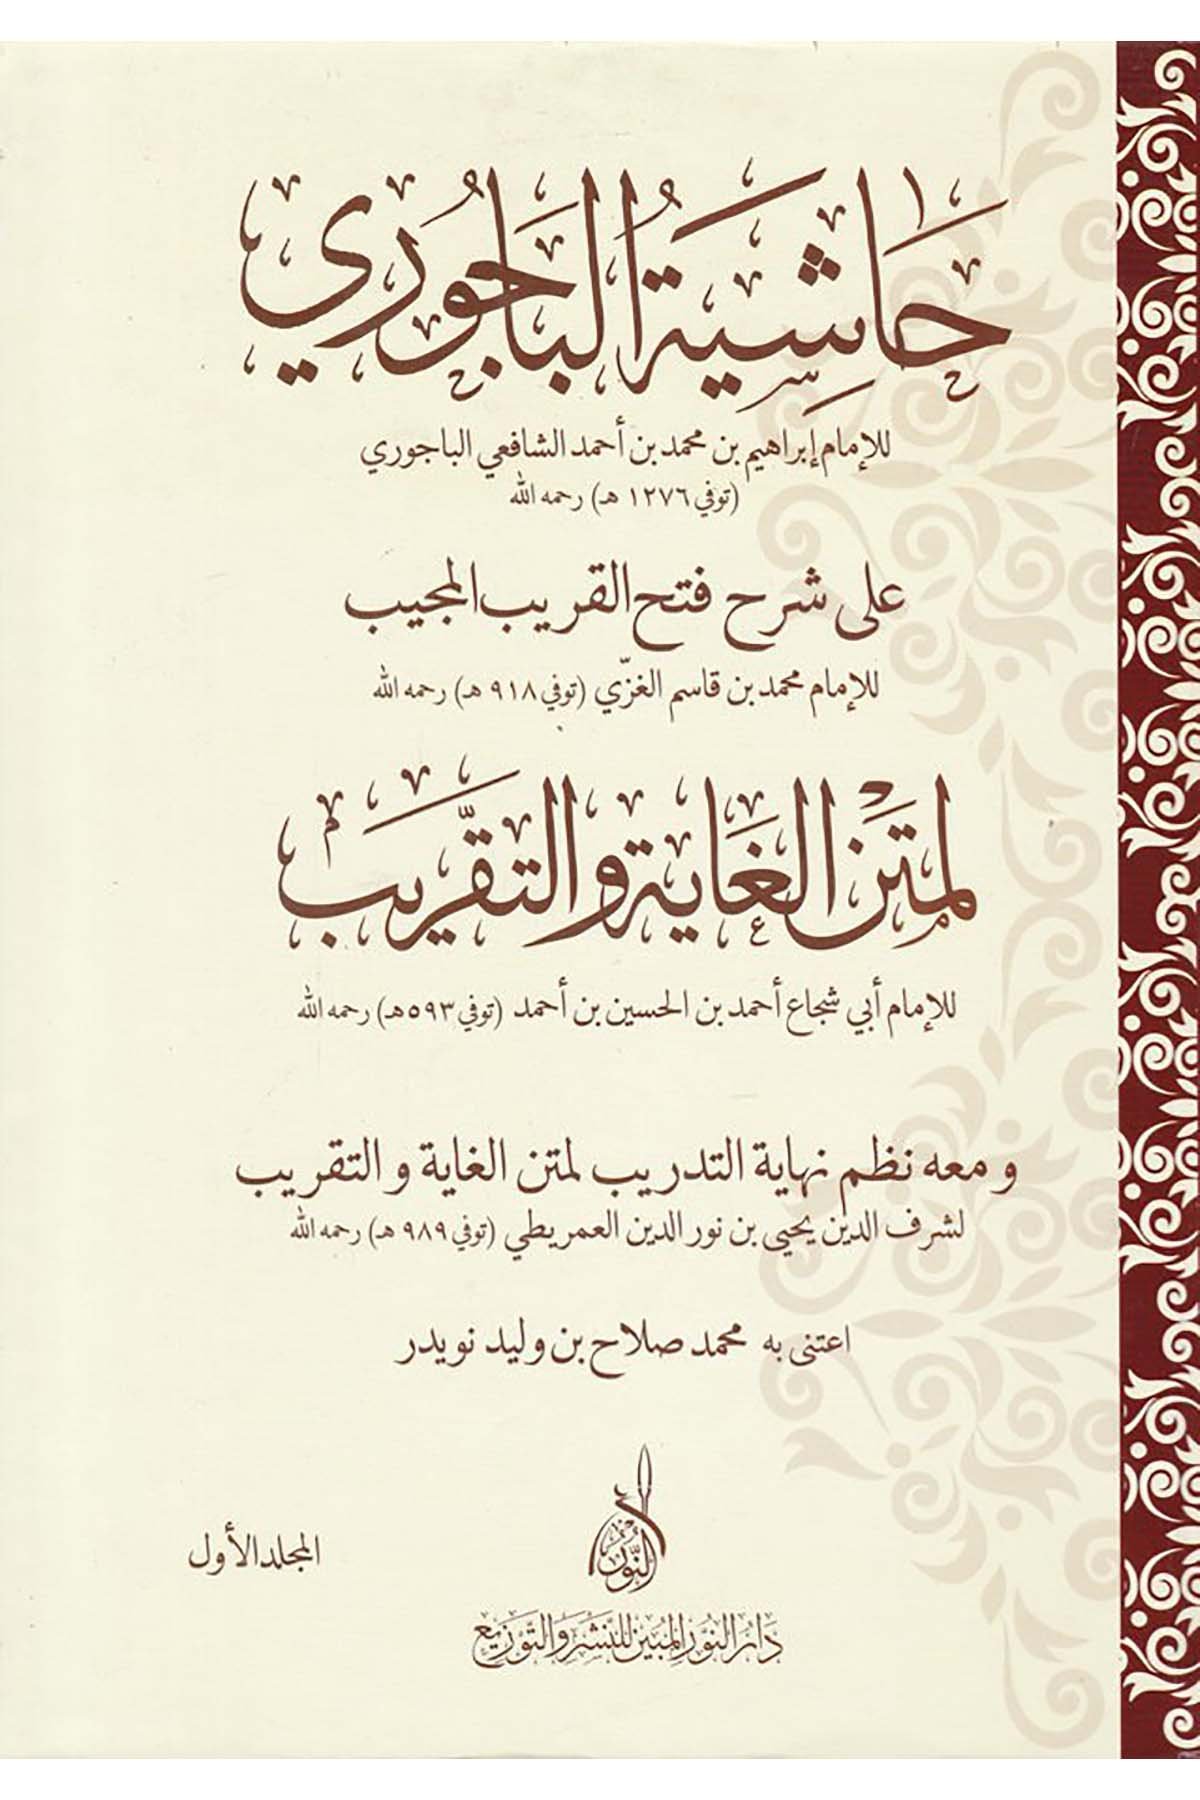 حَاشِيَةُ البَاجُورِي
للإمام إبراهيم بن محمد بن أحمد الشافعي الباجوري
(توفي ١٢٧٦ هـ) رحمه الله
على شرح فتح القريب المجيب
للإمام محمد بن قاسم الغزّي (توفي ٩١٨ هـ) رحمه الله
لمَتْنِ الغَايَةِ والتَقَرِّيب
للإمام أبي شجاع أحمد بن الحسين بن أحمد (توفي ٥٩٣هـ) رحمه الله
و معه نظم نهاية التدريب لمتن الغاية و التقريب
لشرف الدين يحيى بن نور الدين العمريطي (توفي ٩٨٩ هـ) رحمه الله
اعتنى به محمد صلاح بن وليد نويدر
المجلد الأول
النُّور
دَارُ النُّورِ المُبِينِ للنَّشْرِ وَالتَّوْزِيعِ